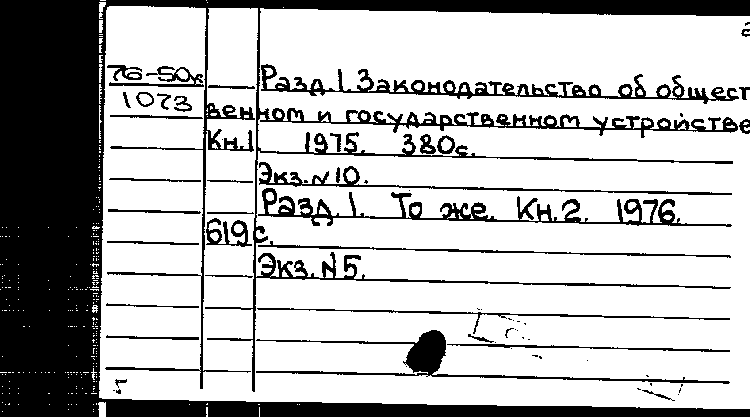 76-50к Разд.1. Законодательство об общест
1073 венном и государственном устройстве
Кн.1. 1975. 380с.
Экз.N10.
Разд.1. То же. Кн.2. 1976.
619с.
Экз.N5.